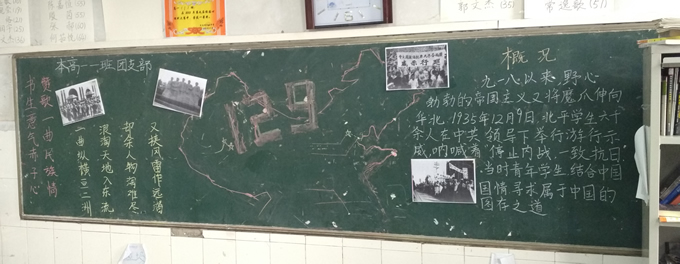 郭文杰(55)
常逸歌(51)
本高一一班团支部
赞歌一曲民族情
书生意气赤子心
又扶风雷作远涛
却余人物写难尽
浪淘天地入东流
一曲纵横亘二州
129
概况
九一八以来,野心
勃勃的帝国主义又将魔爪伸向
华北,1935年12月9日,北平学生六千
余人在中共领导下举行游行示
威,呐喊着“停止内战,一致抗日”
当时青年学生结合中国
国情寻求属于中国的
图存之道